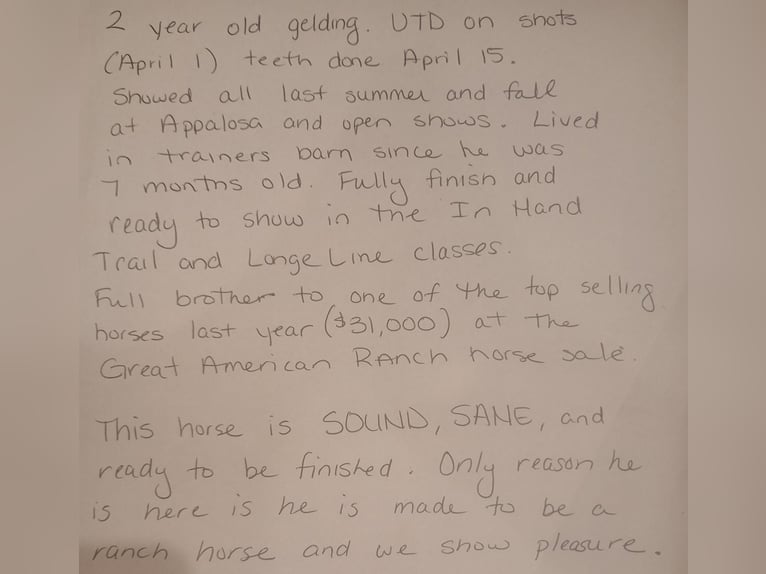 2 year old gelding. UTD on shots
(April 1) teeth done April 15.
Showed all last summer and fall
at Appalosa and open shows. Lived
in trainers barn since he was
7 months old. Fully finish and
ready to show in the In Hand
Trail and Longe Line classes.
Full brother to one of the top selling
horses last year ($31,000) at the
Great American Ranch horse sale.
This horse is SOUND, SANE, and
ready to be finished. Only reason he
is here is he is made to be a
ranch horse and we show pleasure.